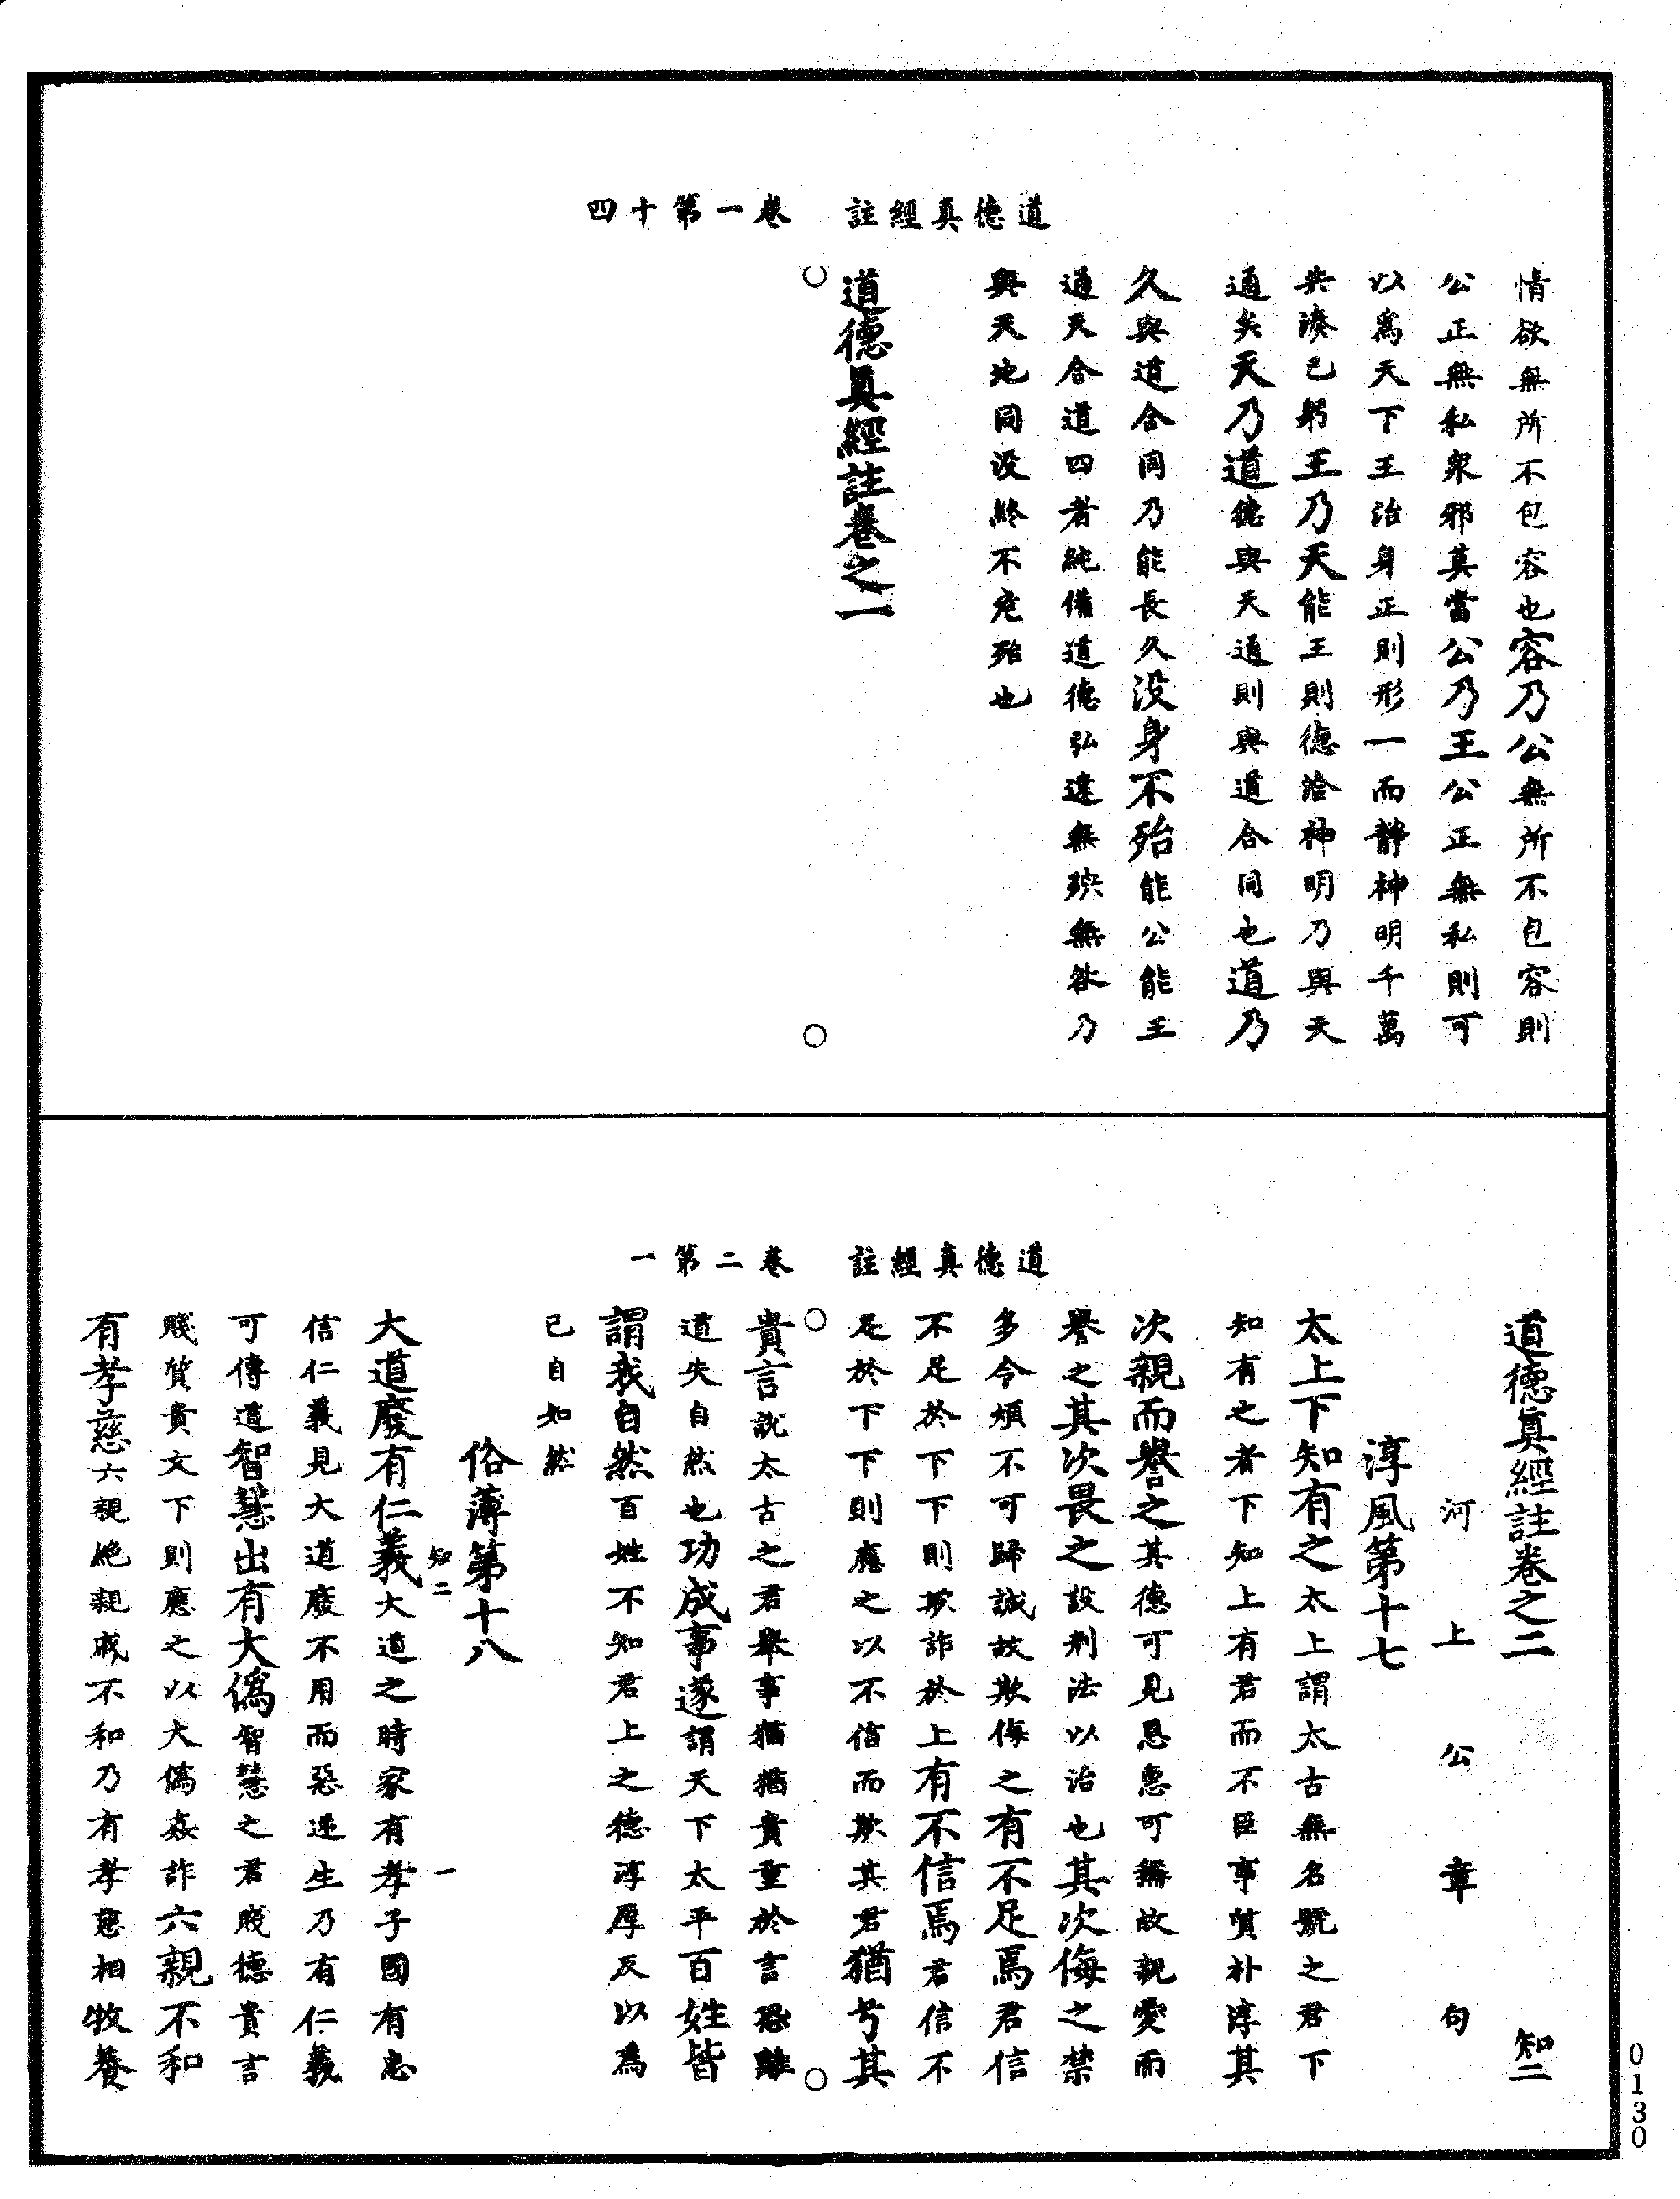 道德真經註　卷一第十四
情欲無所不包容也容乃公無所不包容則
公正無私衆邪莫當公乃王公正無私則可
以爲天下王治身正則形一而靜神明千萬
共湊已躬王乃天能王則德洽神明乃與天
通矣天乃道德與天通則與道合同也道乃
久與道合同乃能長久没身不殆能公能王
通天合道四者純備道德弘遠無殃無咎乃
與天地同没終不危殆也
道德眞經註卷之一
道德真經註　卷二第一
道德眞經註卷之二　知二
河上公章句
淳風第十七
太上下知有之太上謂太古無名號之君下
知有之者下知上有君而不臣事質朴淳其
次親而譽之其德可見恩惠可稱故親愛而
譽之其次畏之設刑法以治也其次侮之禁
多令煩不可歸誠故欺侮之有不足焉君信
不足於下下則欺詐於上有不信焉君信不
足於下下則應之以不信而欺其君猶兮其
貴言說太古之君舉事猶猶貴重於言恐離
道失自然也功成事遂謂天下太平百姓皆
謂我自然百姓不知君上之德淳厚反以爲
己自知然
俗薄第十八
知二　一
大道廢有仁義大道之時家有孝子國有忠
信仁義見大道廢不用而惡逆生乃有仁義
可傳道智慧出有大僞智慧之君賤德貴言
賤質貴文下則應之以大僞姦詐六親不和
有孝慈六親絶親戚不和乃有孝慈相牧養
0130